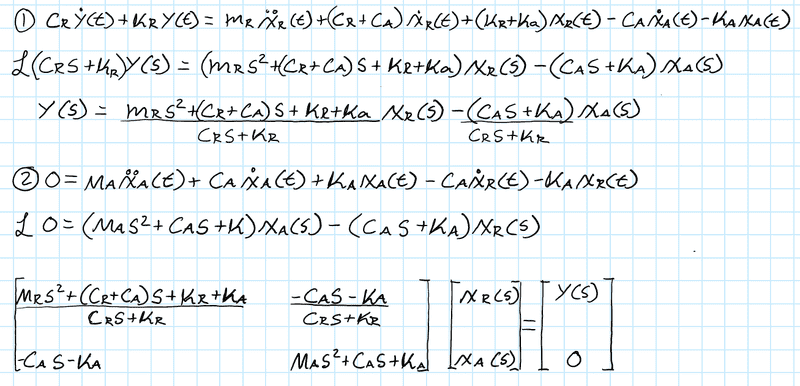 ① CRẎ(t)+KRY(t) = mRẍR(t)+(CR+CA)ẋR(t)+(KR+Ka)xR(t)-CAẋA(t)-KAxA(t)
ℒ(CRS+KR)Y(S) = (mRS²+(CR+CA)S+KR+Ka)xR(S)-(CAS+KA)xA(S)
Y(S) = (mRS²+(CR+CA)S+KR+Ka)/(CRS+KR) xR(S) - (CAS+KA)/(CRS+KR) xA(S)
② 0 = MAẍA(t)+CAẋA(t)+KAxA(t)-CAẋR(t)-KAxR(t)
ℒ 0 = (MAS²+CAS+K)xA(S)-(CAS+KA)xR(S)
[(MRS²+(CR+CA)S+KR+KA)/(CRS+KR) (-CAS-KA)/(CRS+KR)] [xR(S)] = [Y(S)]
[-CAS-KA MAS²+CAS+KA] [xA(S)] [0]